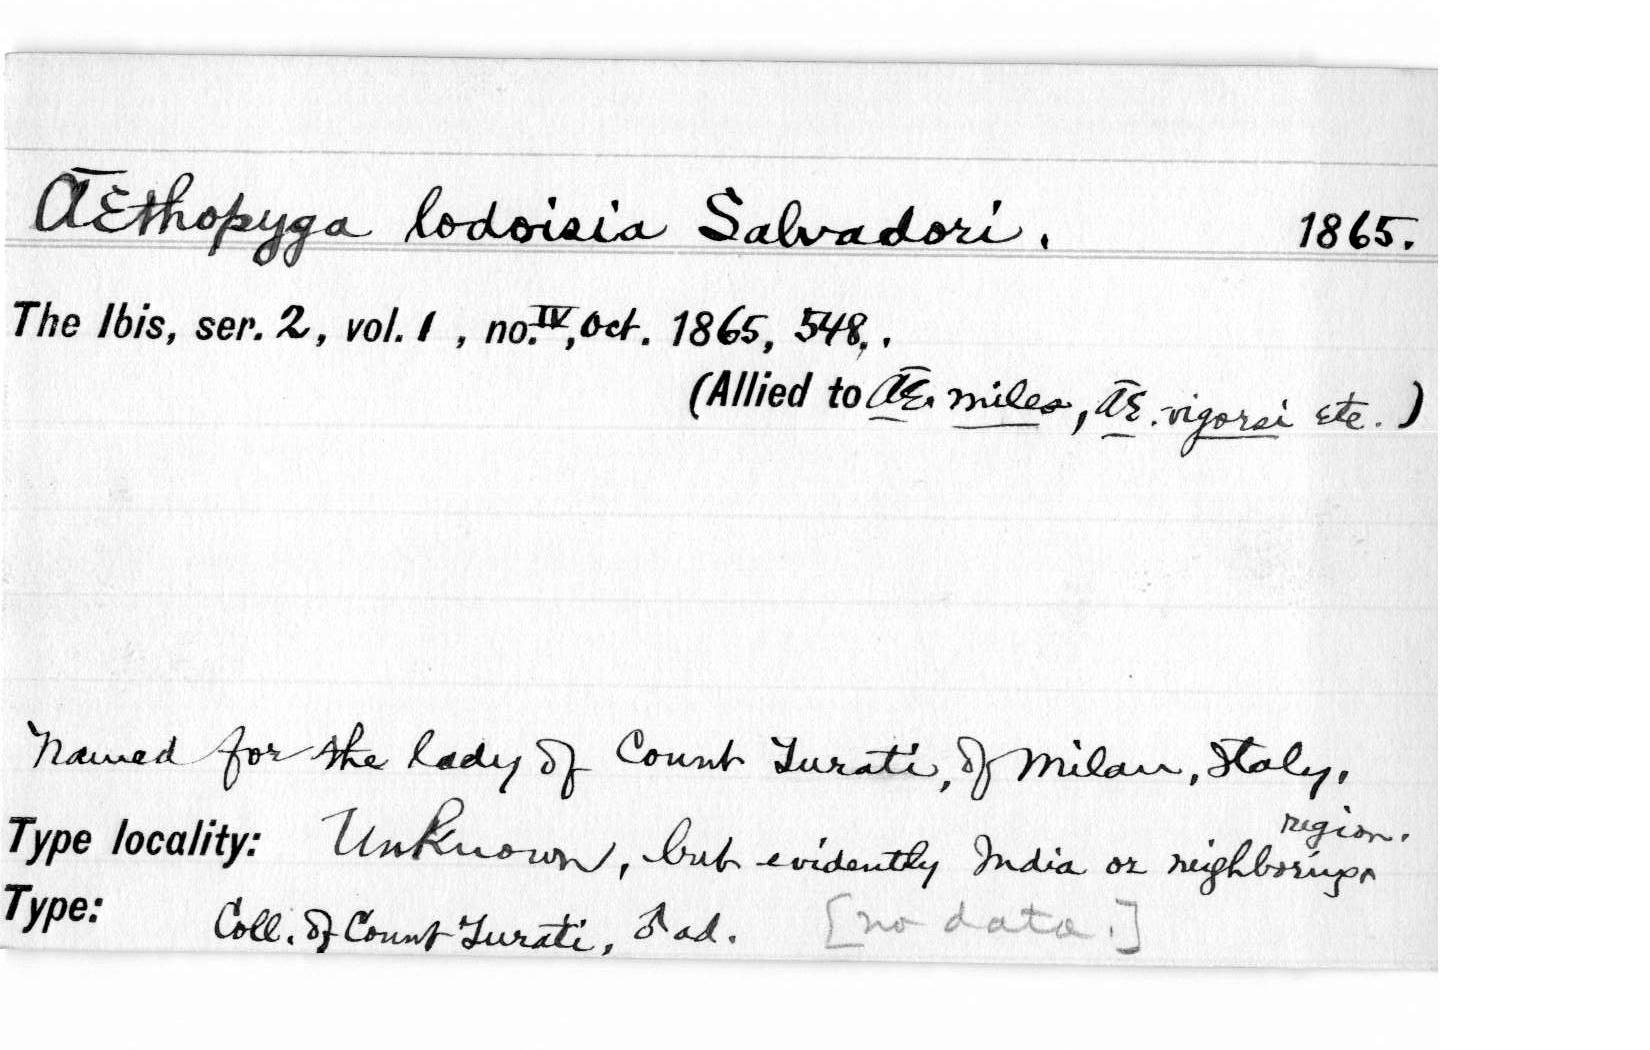 Æthopyga lodoisia Salvadori. 1865.
The Ibis, ser. 2, vol. 1, no. IV, Oct. 1865, 548.
(Allied to Æ. miles, Æ. vigorsi etc.)
Named for the lady of Count Turati, of Milan, Italy.
Type locality: Unknown, but evidently India or neighboring region.
Type: Coll. of Count Turati, ♂ ad. [no data.]